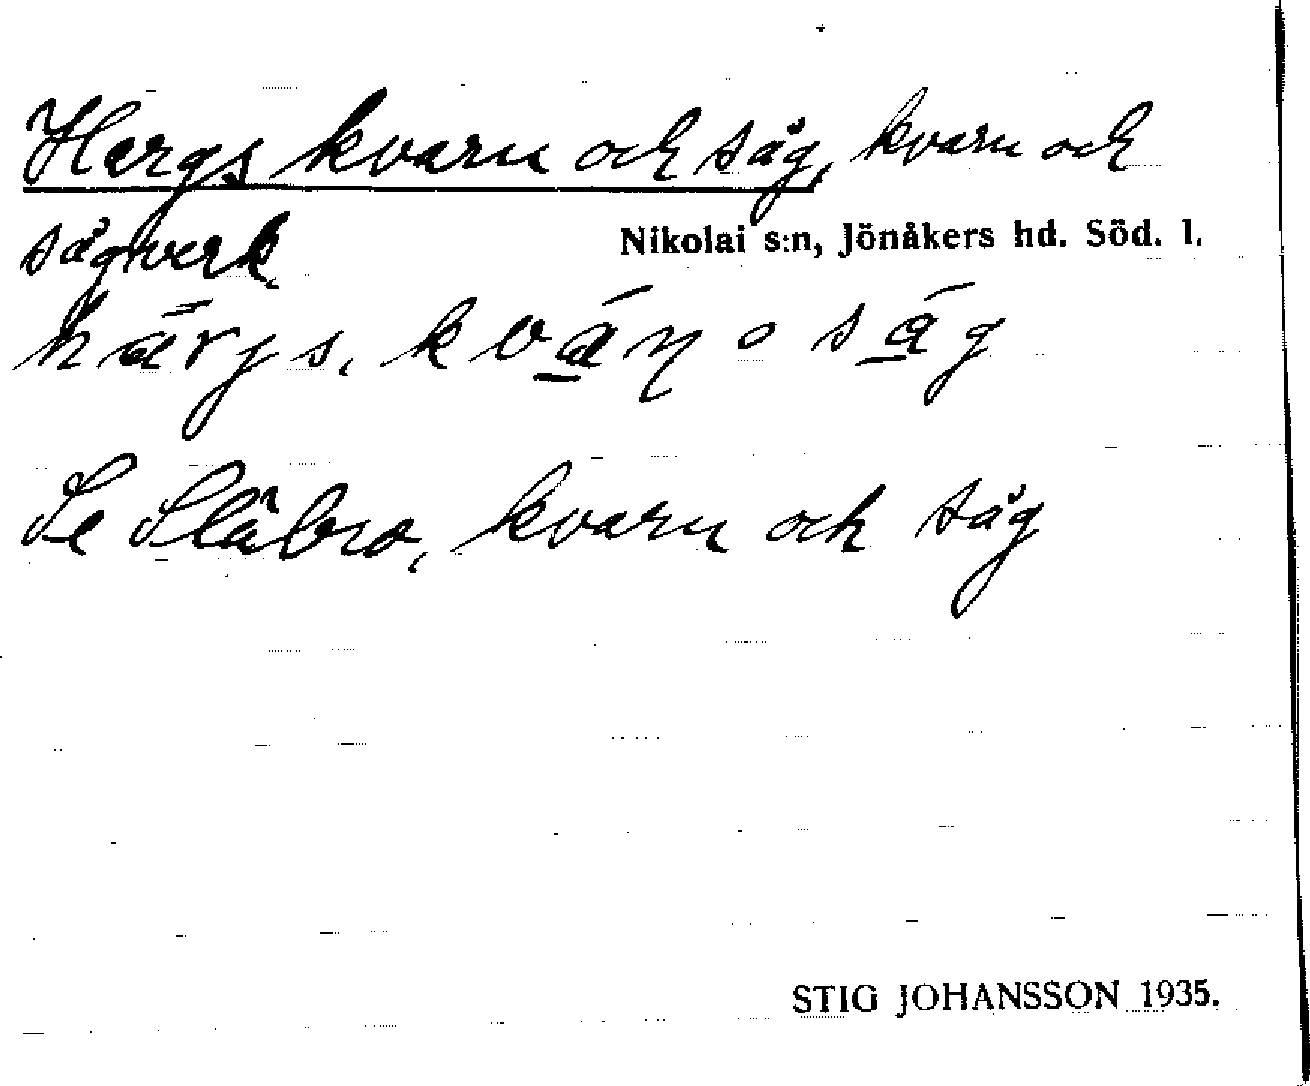 Hargs kvarn och såg, kvarn och
sågverk.
Nikolai s:n, Jönåkers hd. Söd. l.
Se Släbro, kvarn och såg
STIG JOHANSSON 1935.